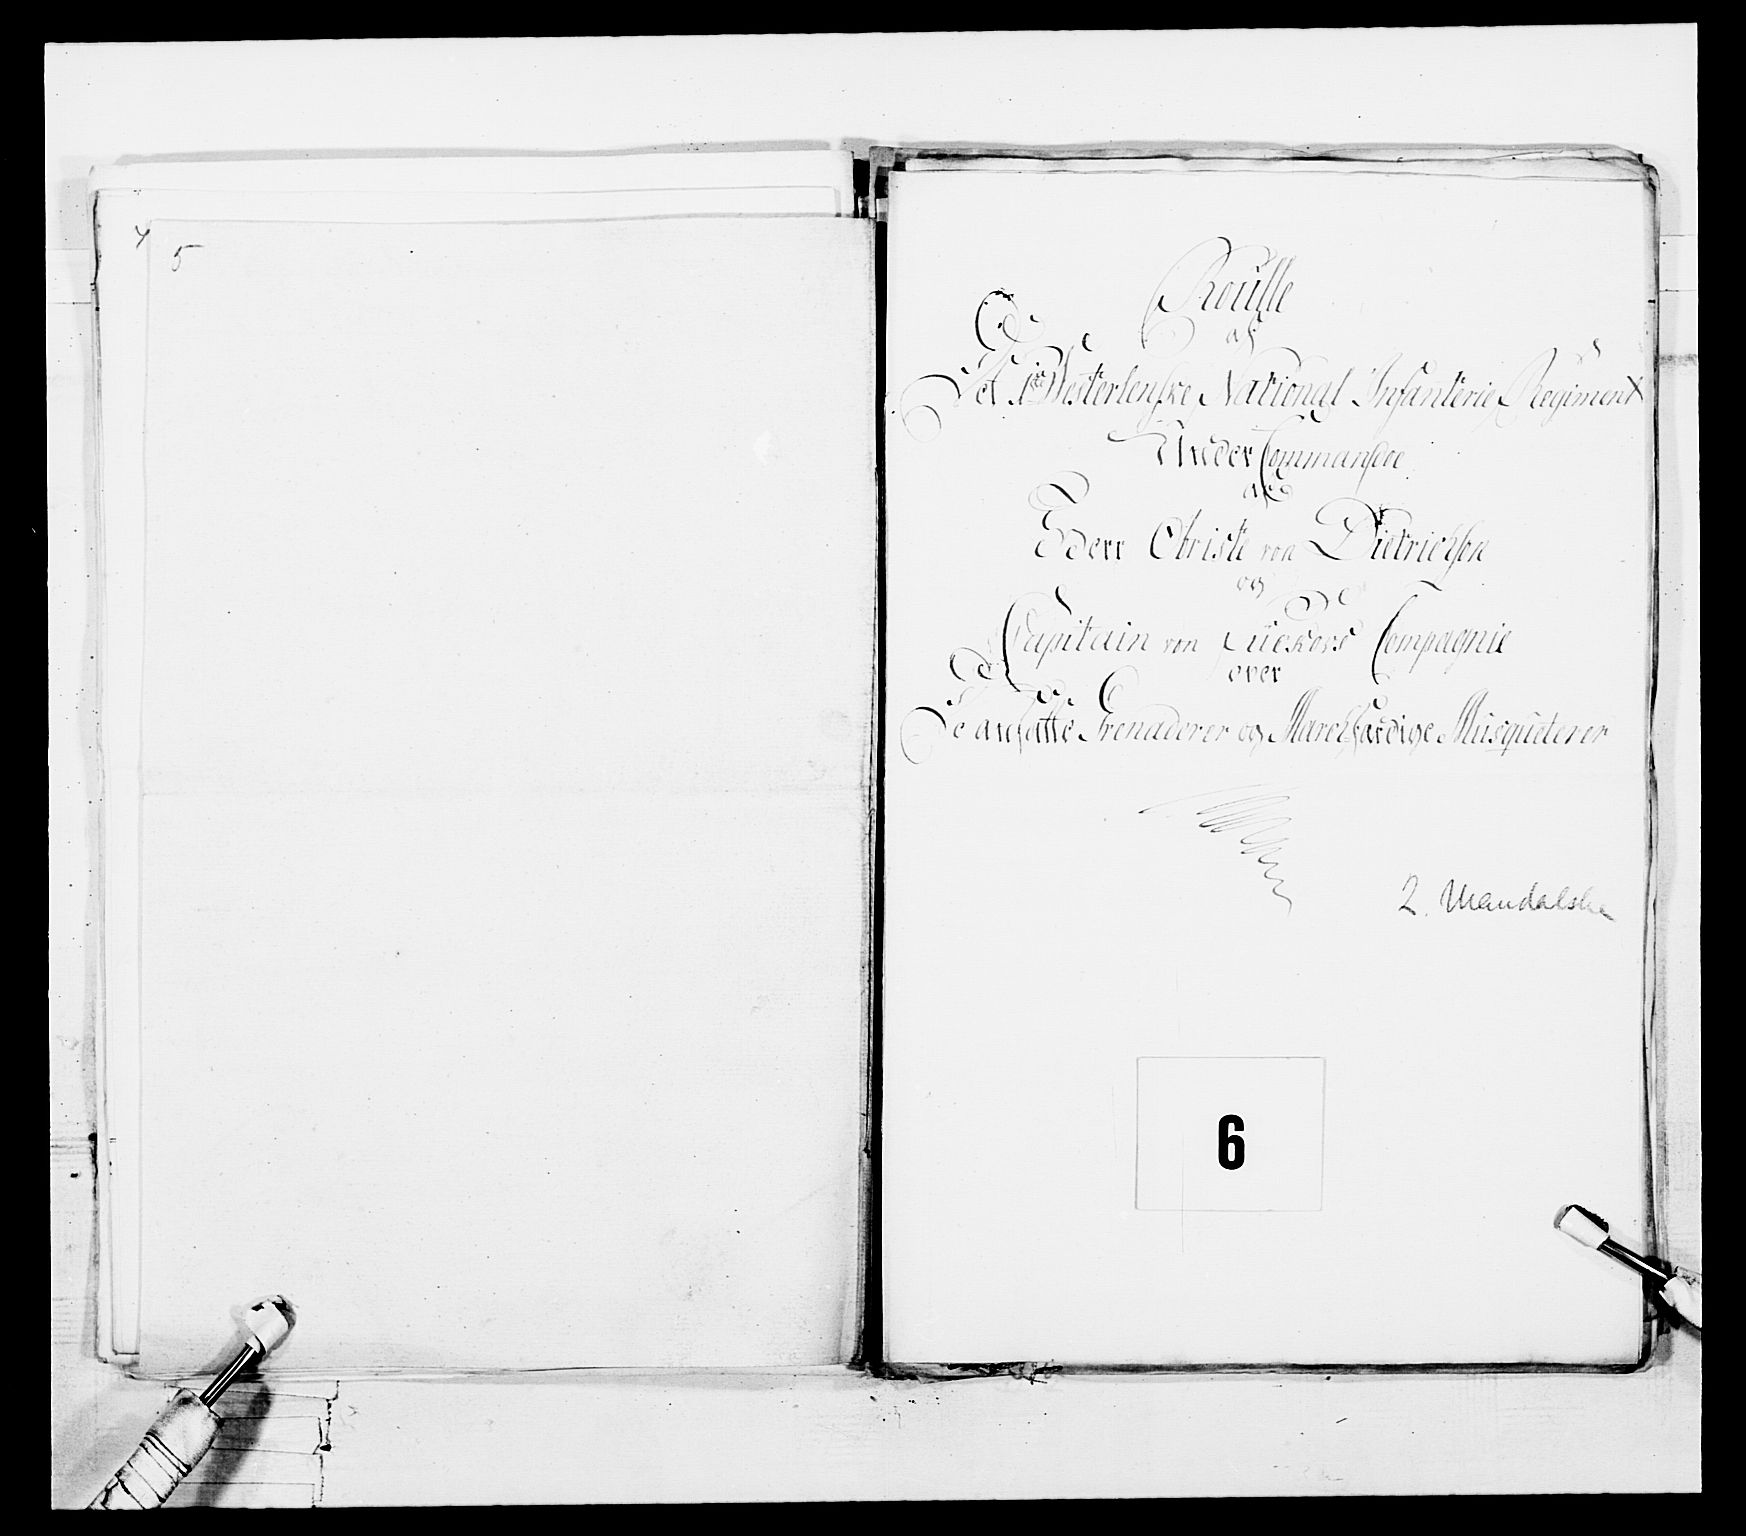 5
Roulle
af
Det 1ste Westerlenske National Infanterie Regiment
Under Commandoe
af
Herr Obriste von Dietrichson
og
Capitain von Compagnie
over
De ansatte Grenaderer og Marchfærdige Musqueterer
2. Mandalske
6